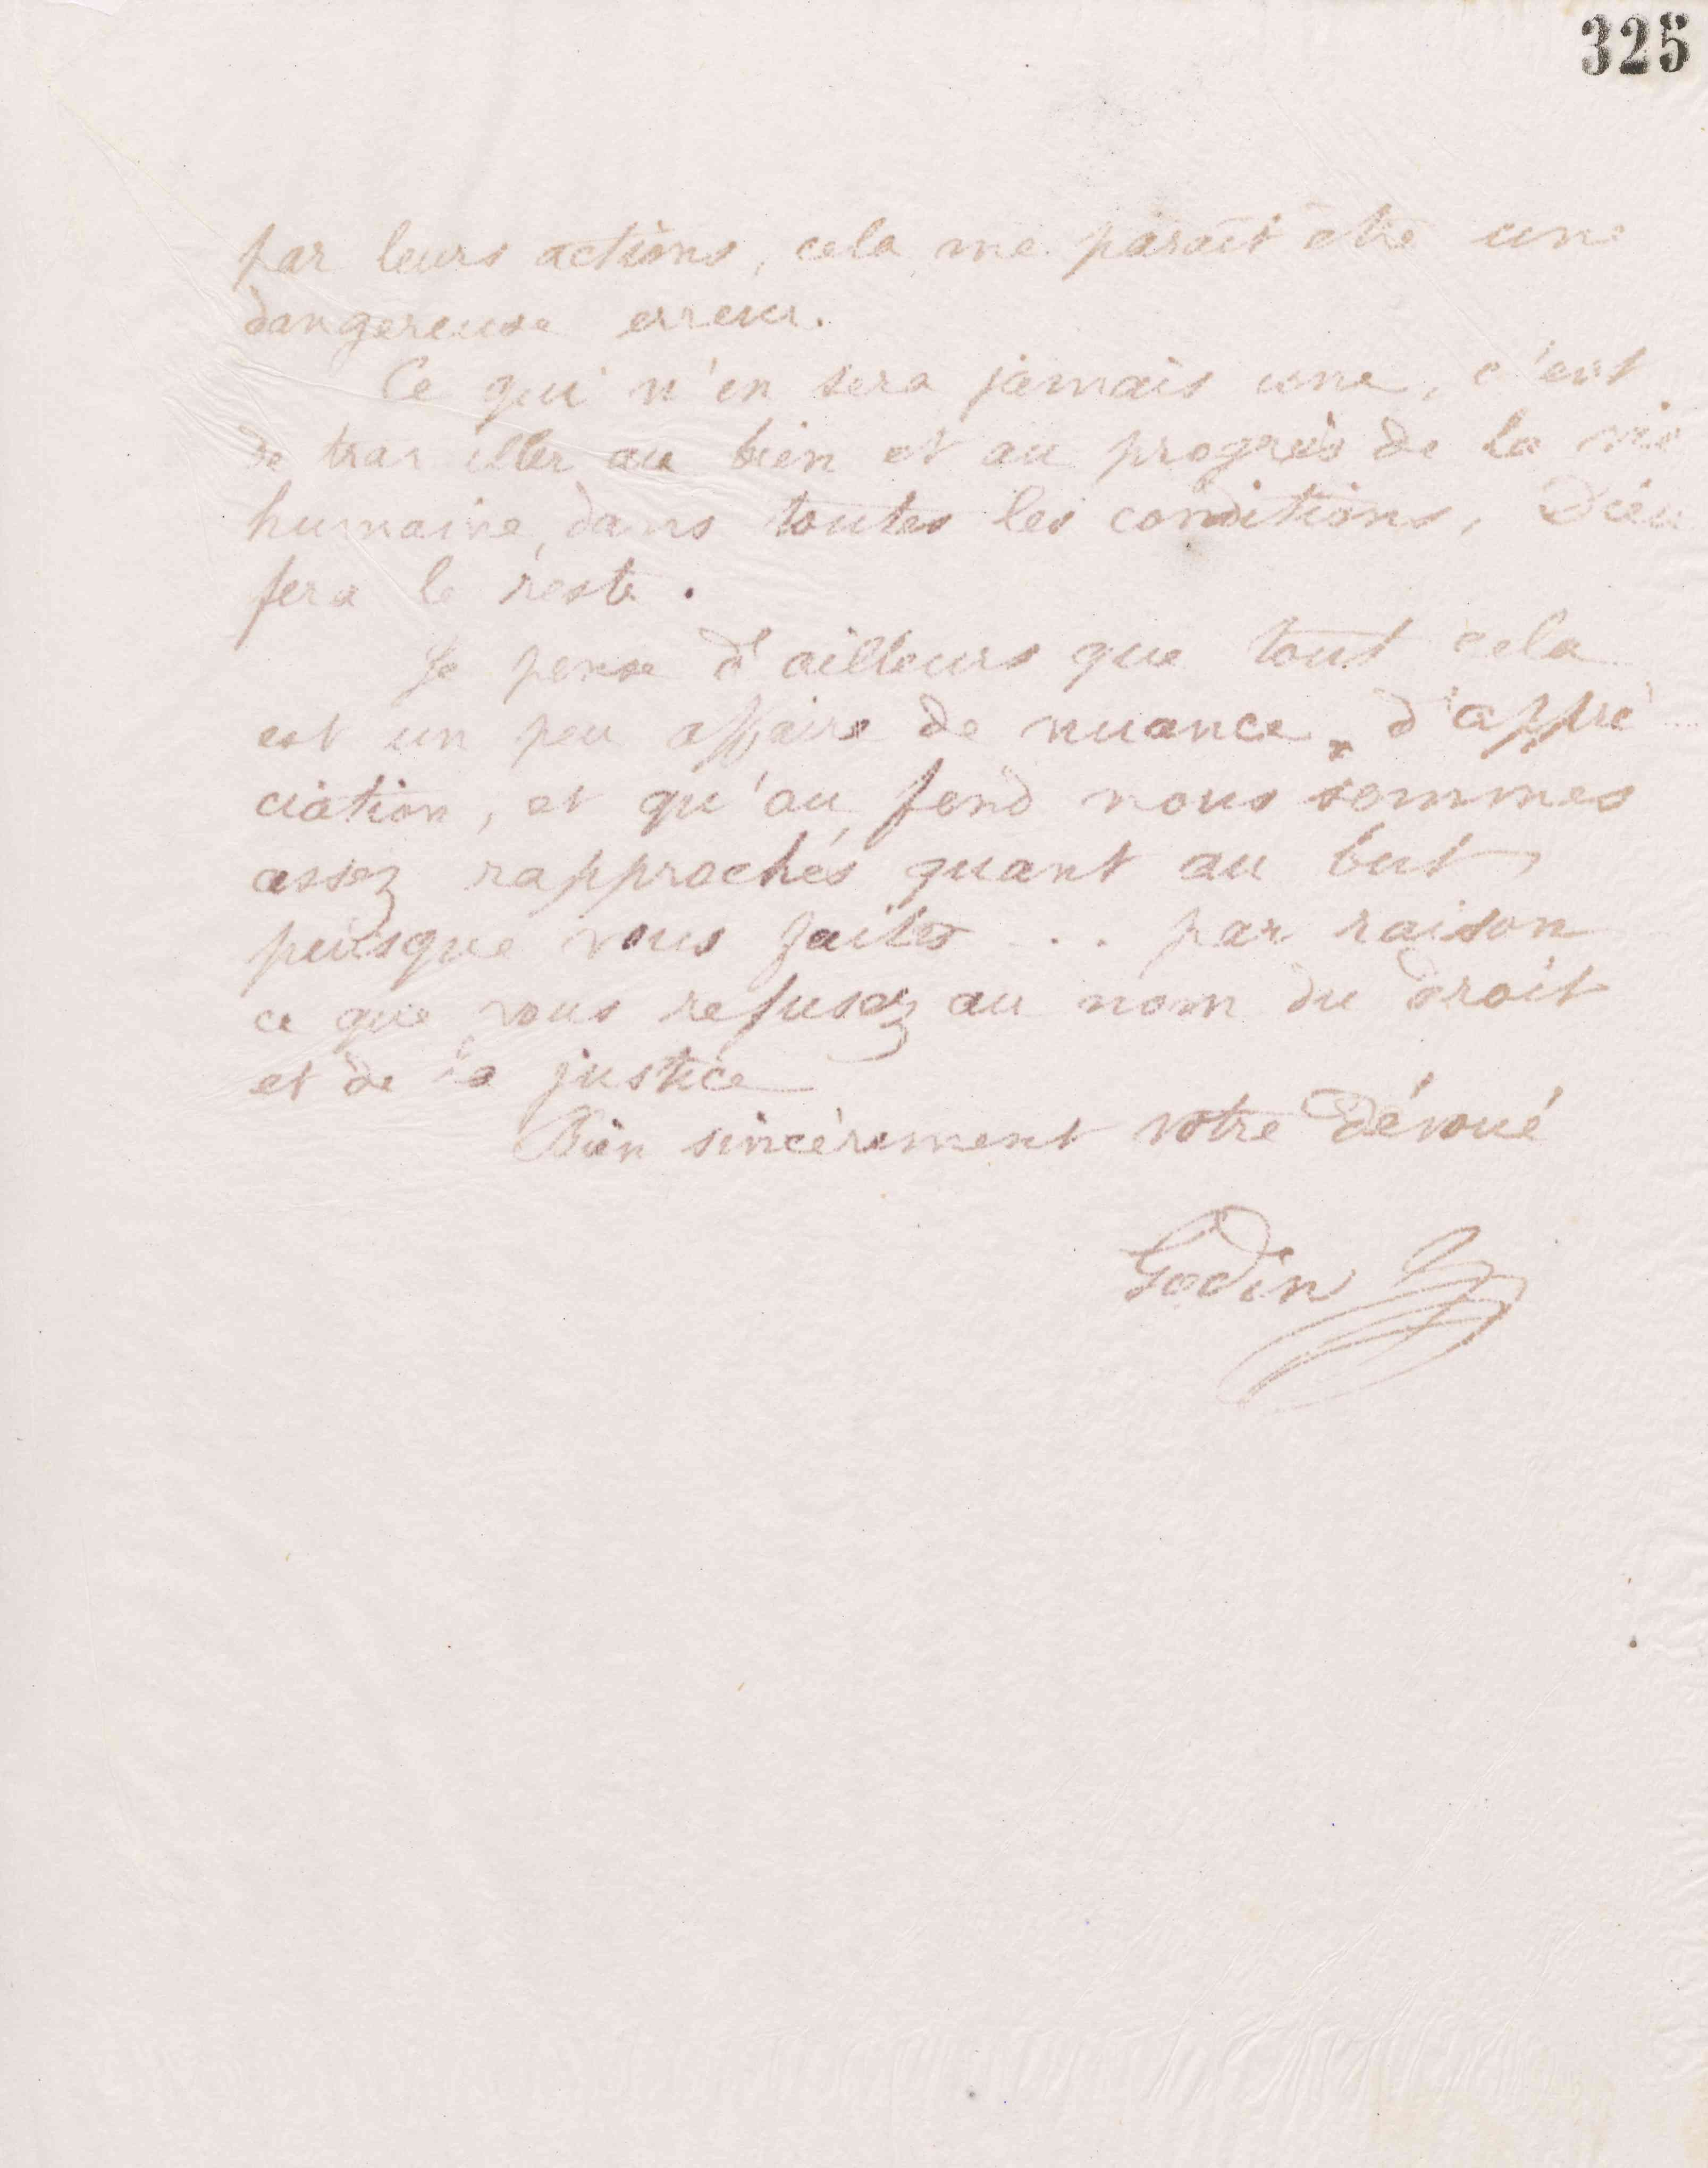 325
par leurs actions, cela me paraît être une
dangereuse erreur.
Ce qui n'en sera jamais une, c'est
de travailler au bien et au progrès de la vie
humaine, dans toutes les conditions, Dieu
fera le reste.
Je pense d'ailleurs que tout cela
est un peu affaire de nuance, d'appré
ciation, et qu'au fond nous sommes
assez rapprochés quant au but,
puisque vous faites par raison
ce que vous refusez au nom du droit
et de la justice
Bien sincèrement votre dévoué
Godin